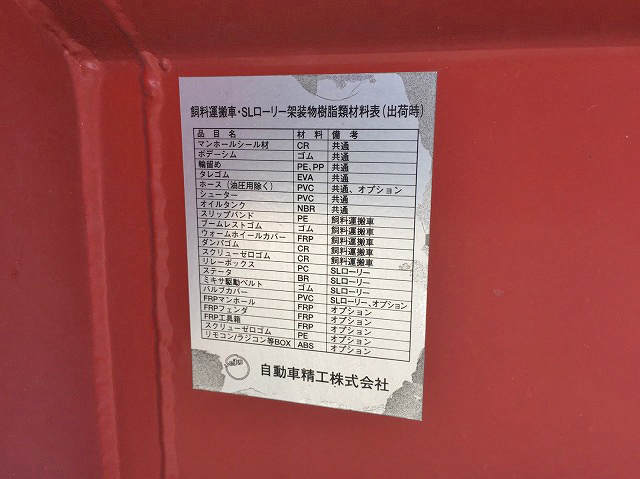 飼料運搬車・SLローリー架装物樹脂類材料表（出荷時）
品目名 材料 備考
マンホールシール材 CR 共通
ボデーシム ゴム 共通
輪留め PE、PP 共通
タレゴム EVA 共通
ホース（油圧用除く） PVC 共通、オプション
シューター PVC 共通
オイルタンク NBR 共通
スリップバンド PE 飼料運搬車
ブームレストゴム ゴム 飼料運搬車
ウォームホイールカバー FRP 飼料運搬車
ダンパゴム CR 飼料運搬車
スクリューゼロゴム CR 飼料運搬車
リレーボックス PC SLローリー
ステータ BR SLローリー
ミキサ駆動ベルト ゴム SLローリー
バルブカバー PVC SLローリー、オプション
FRPマンホール FRP オプション
FRPフェンダ FRP オプション
FRP工具箱 FRP オプション
スクリューゼロゴム PE オプション
リモコン/ラジコン等BOX ABS オプション
自動車精工株式会社